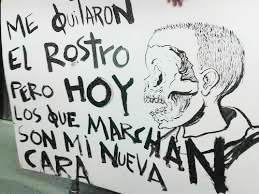 ME QUITARON
EL ROSTRO
PERO HOY
LOS QUE MARCHAN
SON MI NUEVA
CARA